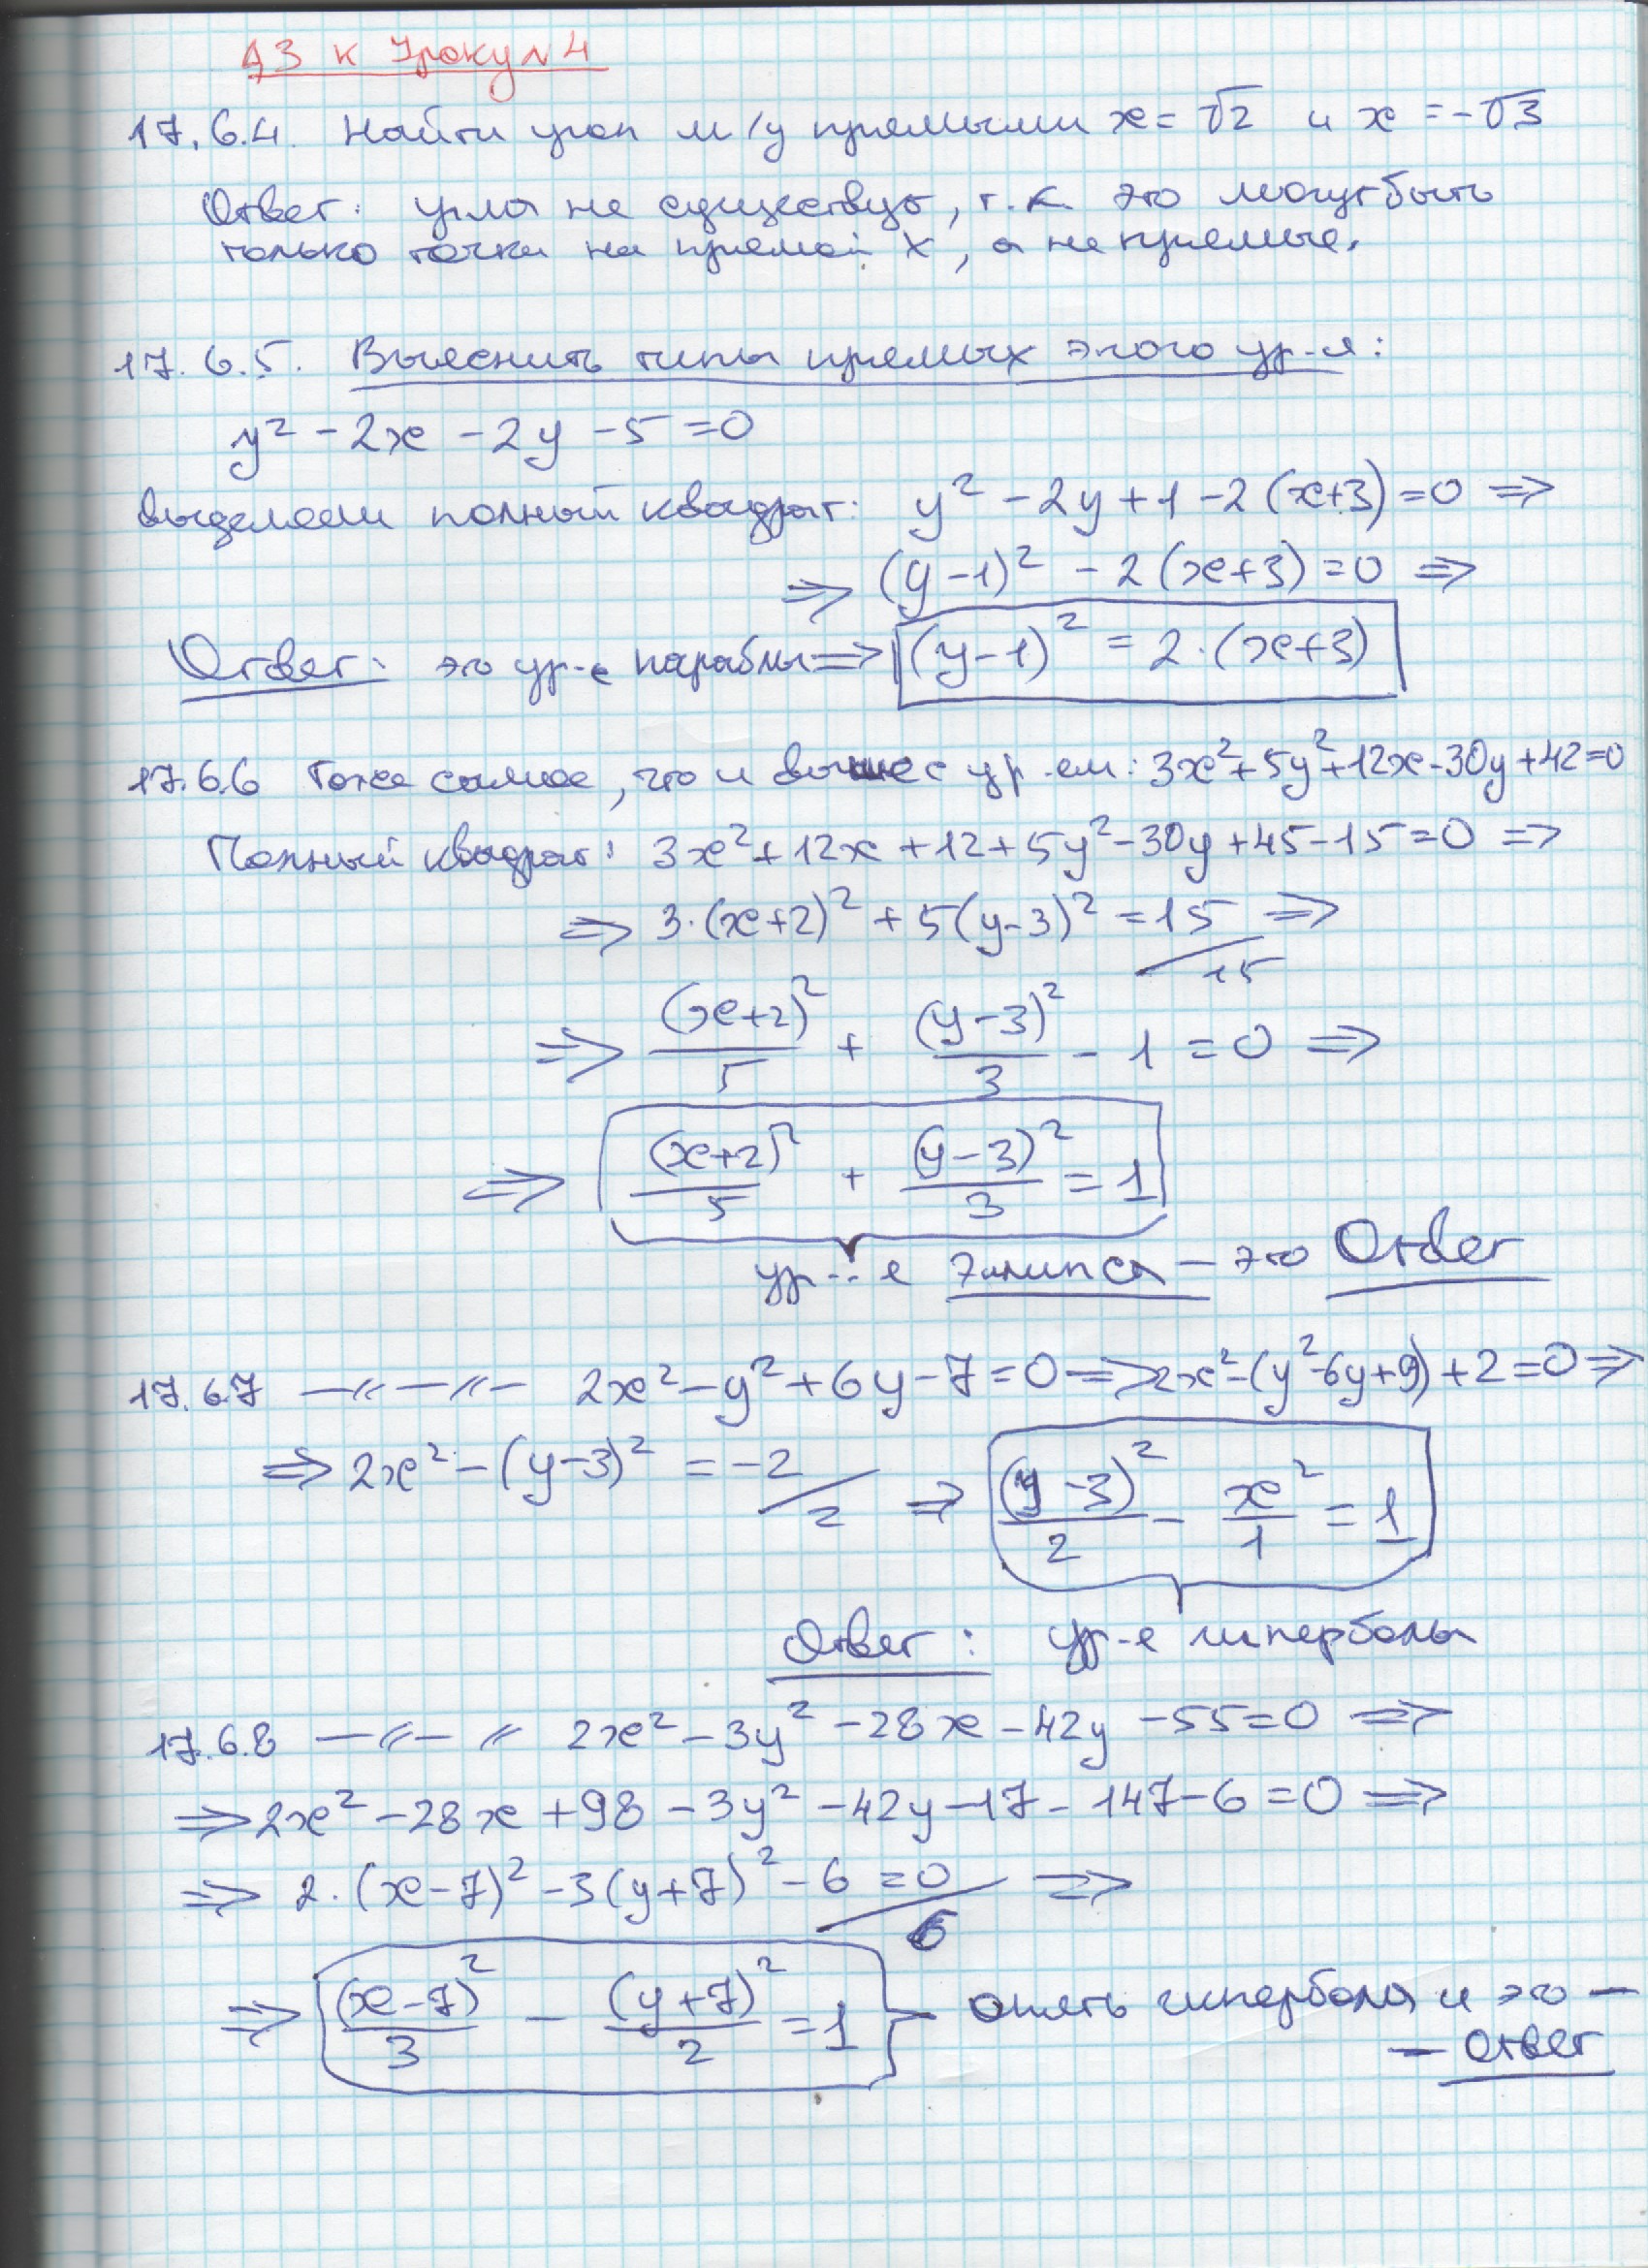 ДЗ к Уроку N 4
17.6.4. Найти угол м/у прямыми x = √2 и x = -√3
Ответ: угла не существует, т.к. это могут быть
только точки на прямой x, а не прямые.
17.6.5. Выяснить типы прямых этого ур-я:
y² - 2x - 2y - 5 = 0
выделяем полный квадрат: y² - 2y + 1 - 2(x+3) = 0 ⇒
⇒ (y-1)² - 2(x+3) = 0 ⇒
Ответ: это ур-е параболы ⇒ (y-1)² = 2·(x+3)
17.6.6 Тоже самое, что и выше с ур-ем: 3x² + 5y² + 12x - 30y + 42 = 0
Полный квадрат: 3x² + 12x + 12 + 5y² - 30y + 45 - 15 = 0 ⇒
⇒ 3·(x+2)² + 5(y-3)² = 15 / 15 ⇒
⇒ (x+2)²/5 + (y-3)²/3 - 1 = 0 ⇒
⇒ (x+2)²/5 + (y-3)²/3 = 1
ур-е элипса - это Ответ
17.6.7 —〃—〃— 2x² - y² + 6y - 7 = 0 ⇒ 2x² - (y² - 6y + 9) + 2 = 0 ⇒
⇒ 2x² - (y-3)² = -2 / 2 ⇒ (y-3)²/2 - x²/1 = 1
Ответ: ур-е гиперболы
17.6.8 —〃—〃 2x² - 3y² - 28x - 42y - 55 = 0 ⇒
⇒ 2x² - 28x + 98 - 3y² - 42y - 17 - 147 - 6 = 0 ⇒
⇒ 2·(x-7)² - 3(y+7)² - 6 = 0 / 6 ⇒
⇒ (x-7)²/3 - (y+7)²/2 = 1 - опять гипербола и это -
- ответ